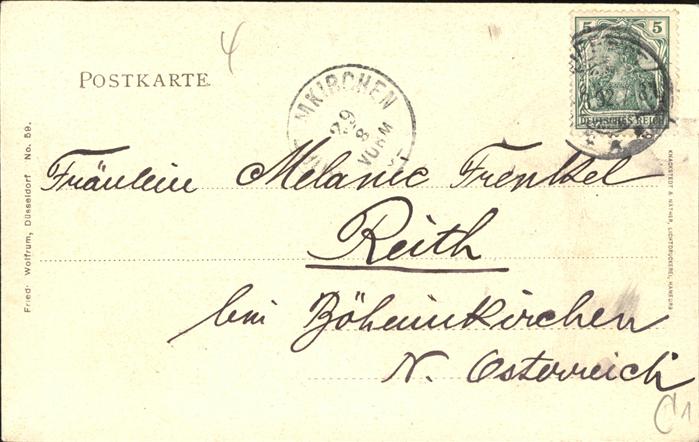 4
POSTKARTE.
5 5
DEUTSCHES REICH
MKIRCHEN
29 8
VORM
Fräulein Melanie Frenkel
Reith
bei Böheimkirchen
N. Österreich
C1
Fried. Wolfrum, Düsseldorf No. 59.
KNACKSTEDT & NÄTHER, LICHTDRUCKEREI, HAMBURG